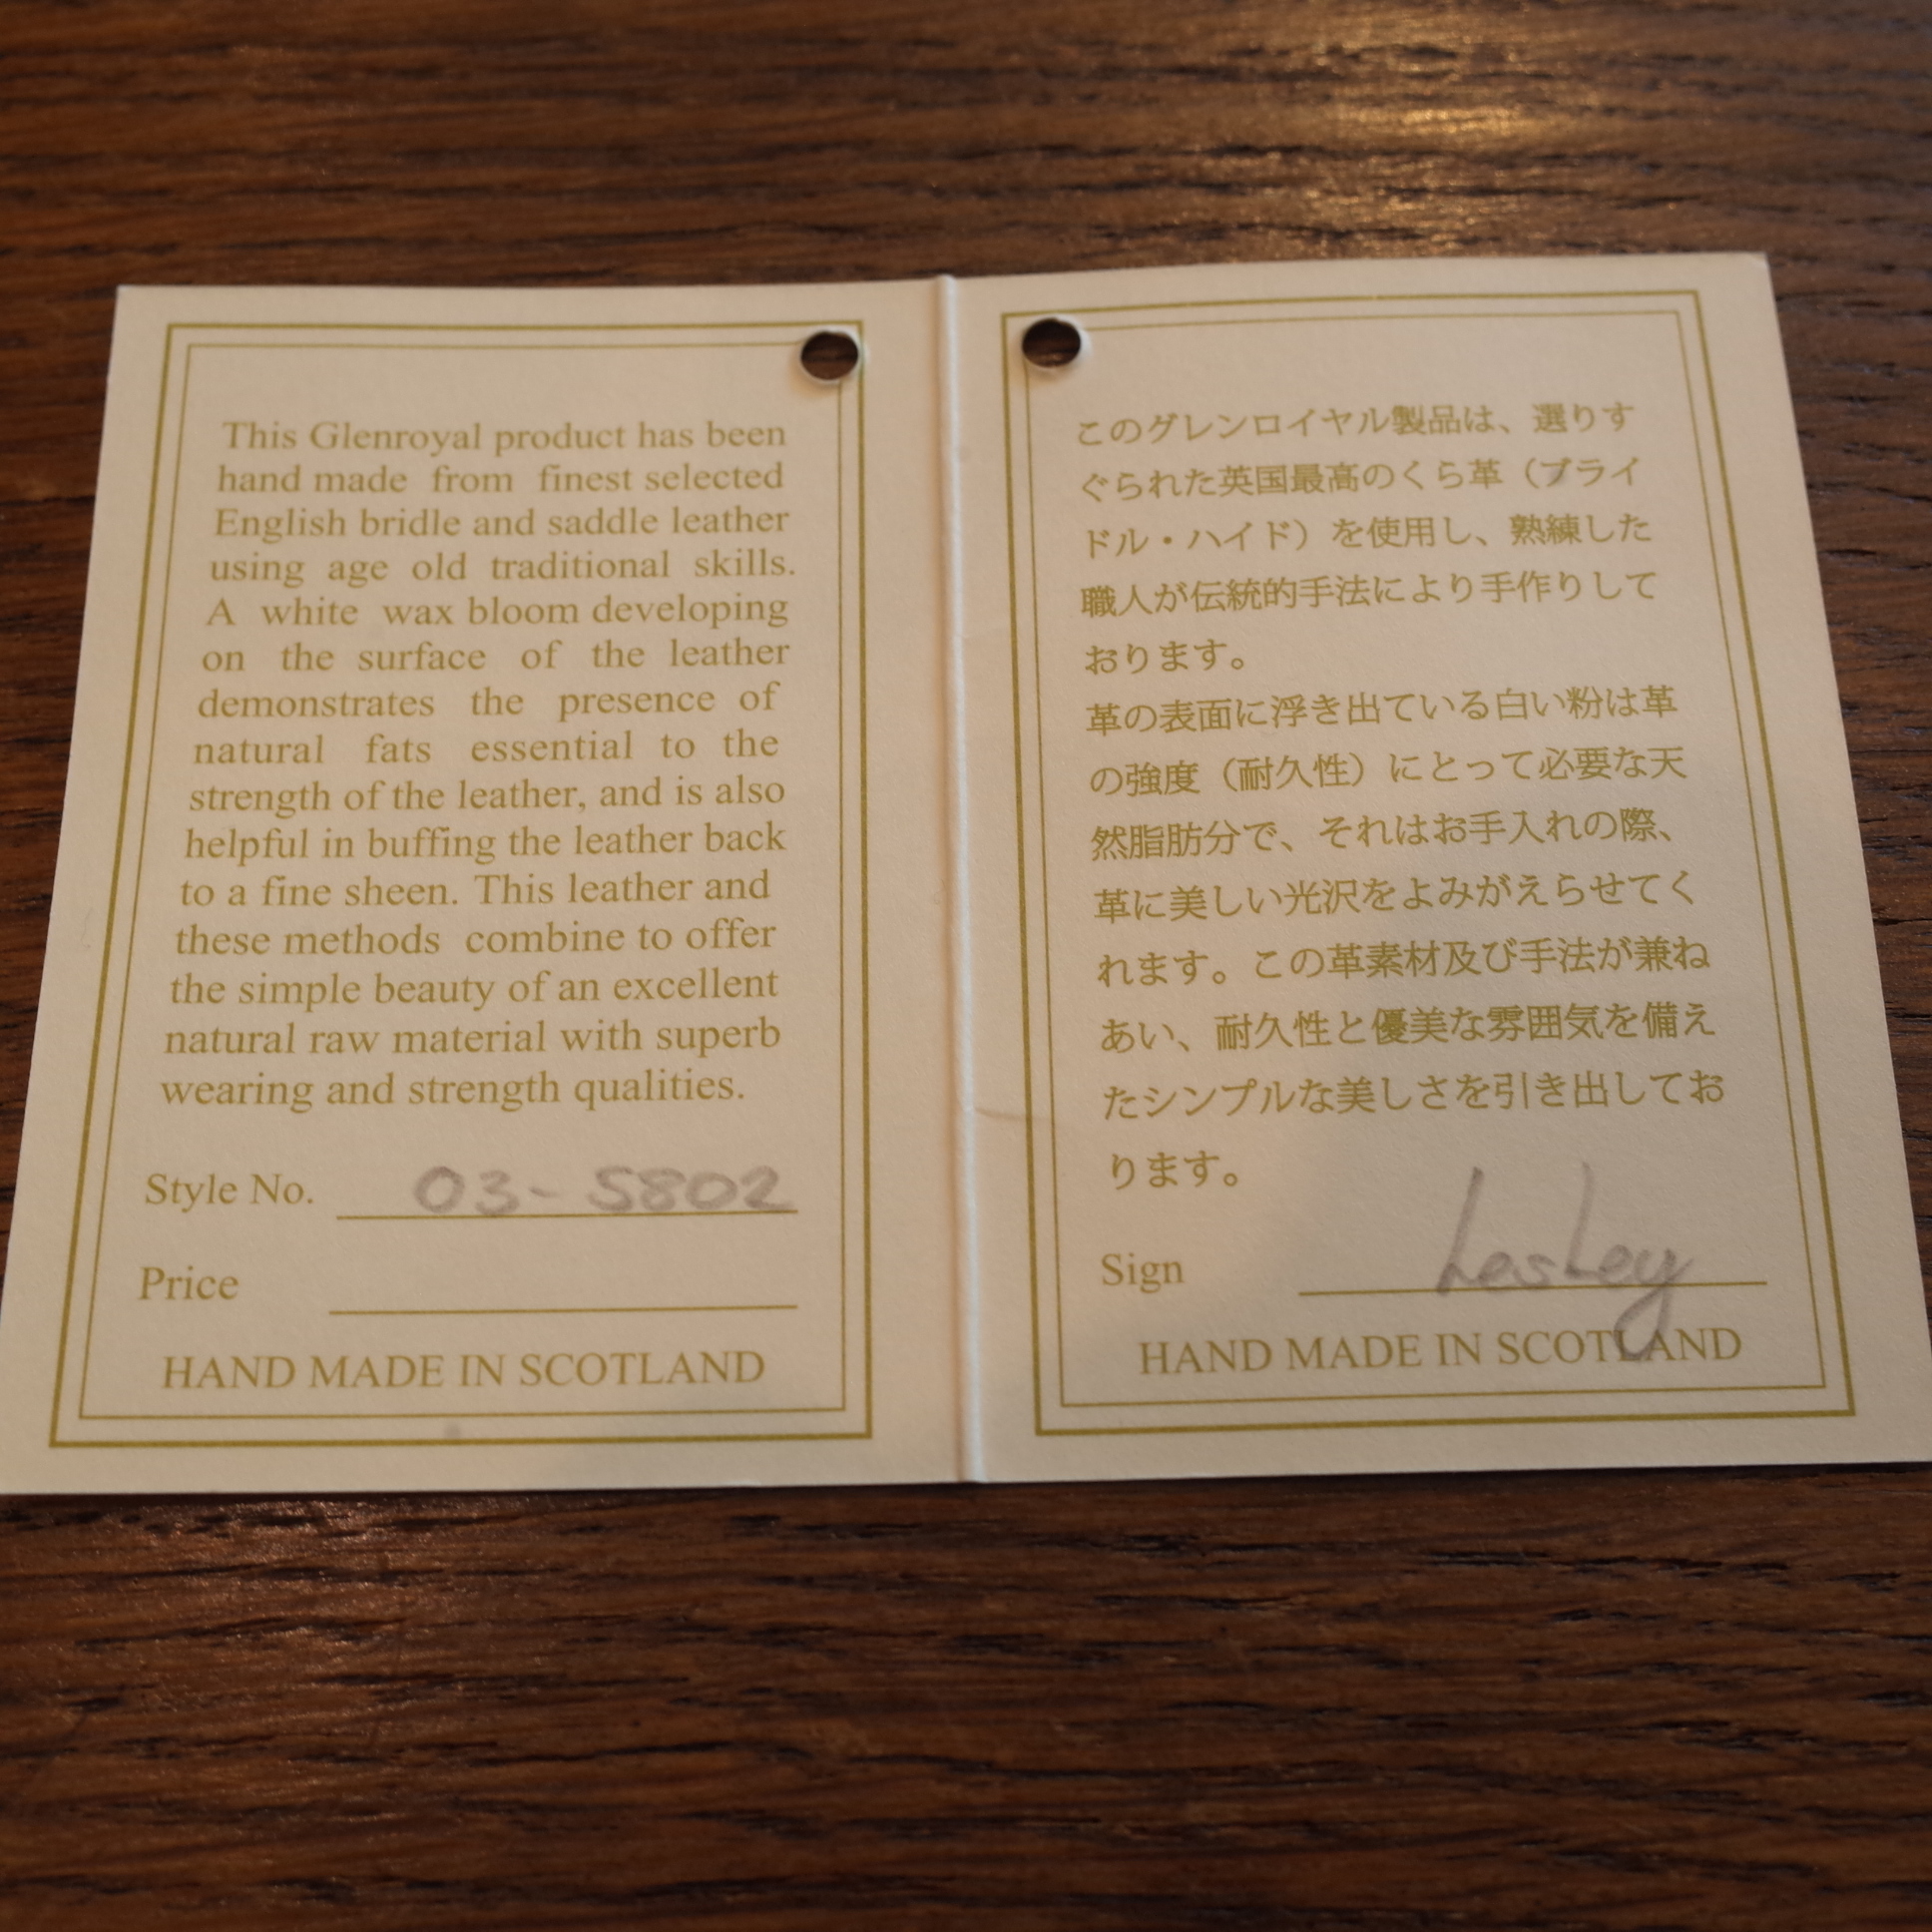 This Glenroyal product has been
hand made from finest selected
English bridle and saddle leather
using age old traditional skills.
A white wax bloom developing
on the surface of the leather
demonstrates the presence of
natural fats essential to the
strength of the leather, and is also
helpful in buffing the leather back
to a fine sheen. This leather and
these methods combine to offer
the simple beauty of an excellent
natural raw material with superb
wearing and strength qualities.
Style No. 03-5802
Price
HAND MADE IN SCOTLAND
このグレンロイヤル製品は、選りす
ぐられた英国最高のくら革（ブライ
ドル・ハイド）を使用し、熟練した
職人が伝統的手法により手作りして
おります。
革の表面に浮き出ている白い粉は革
の強度（耐久性）にとって必要な天
然脂肪分で、それはお手入れの際、
革に美しい光沢をよみがえらせてく
れます。この革素材及び手法が兼ね
あい、耐久性と優美な雰囲気を備え
たシンプルな美しさを引き出してお
ります。
Sign Lesley
HAND MADE IN SCOTLAND